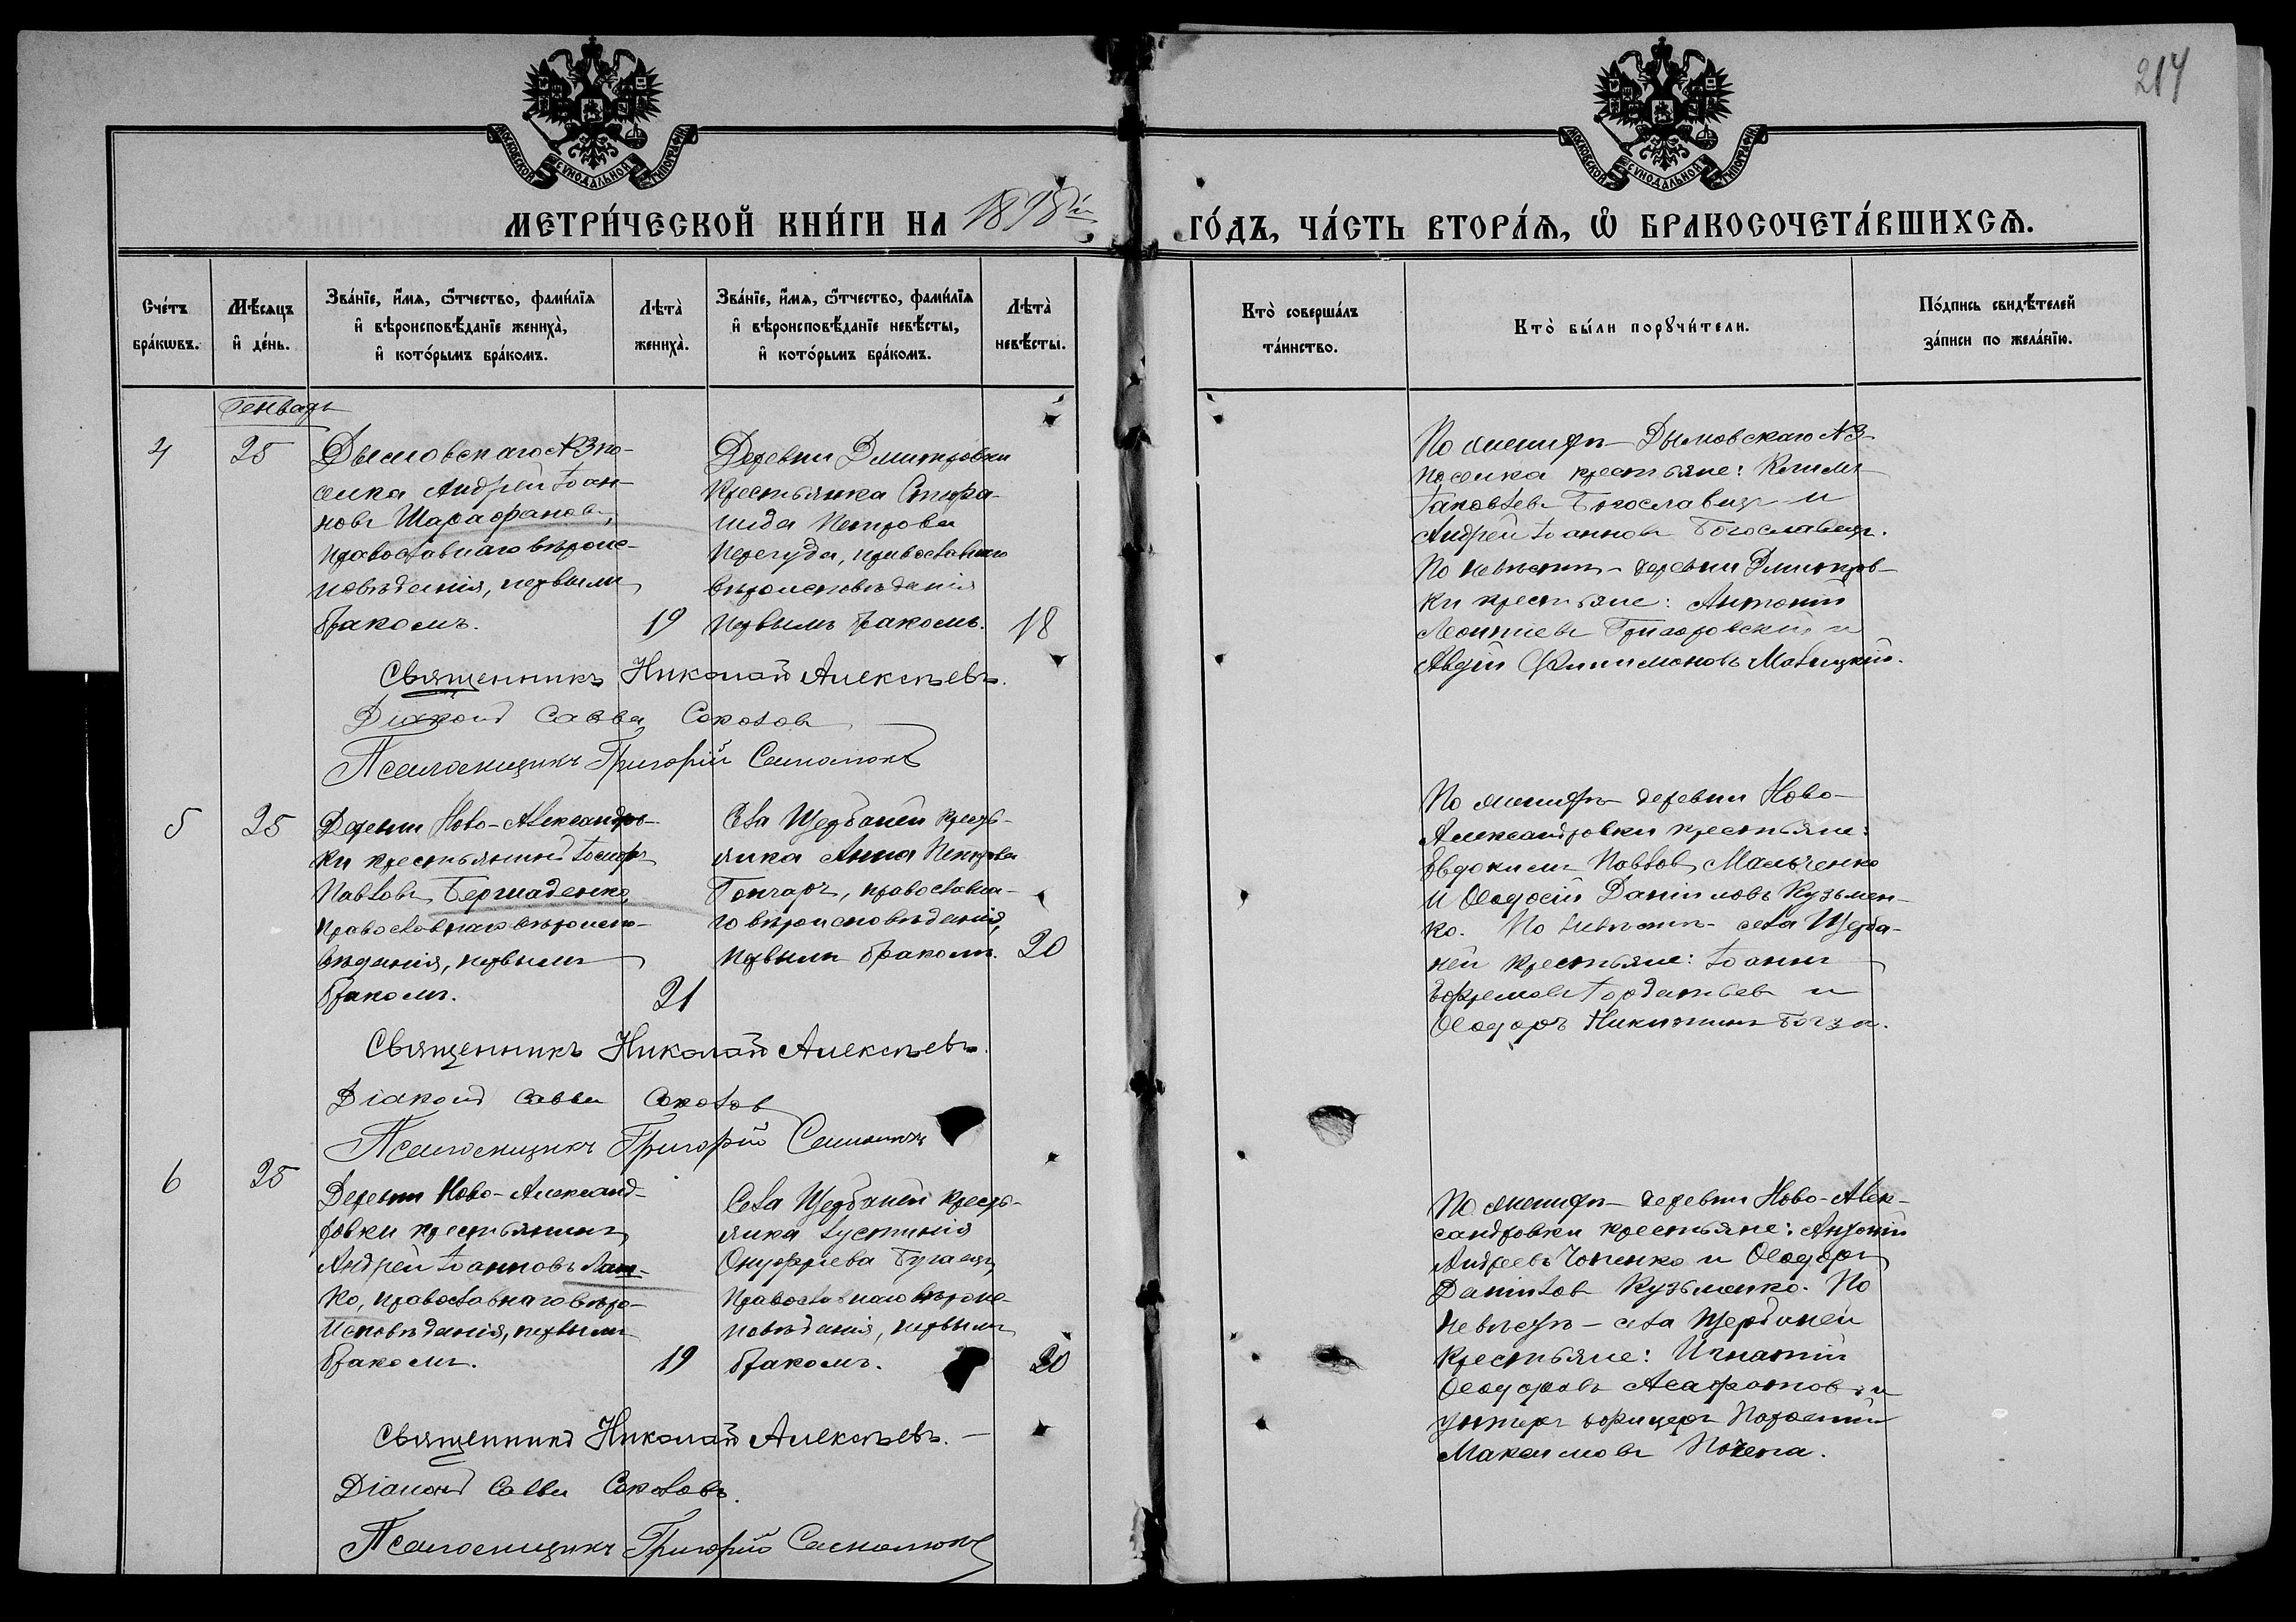 214
МОСКОВСКОЙ СУНОДАЛЬНОЙ ТИПОГРАФІИ
МОСКОВСКОЙ СУНОДАЛЬНОЙ ТИПОГРАФІИ
МЕТРИ́ЧЕСКОЙ КНИ́ГИ НА 1898й ГО́ДЪ, ЧА́СТЬ ВТОРА́Ѧ, Ѽ БРАКОСОЧЕТА́ВШИХСѦ.
Сче́тъ бра́кѡвъ.
Мѣ́сѧцъ и҆ де́нь.
Зва́нїе, и҆́мѧ, ѻ҆́тчество, фами́лїѧ и҆ вѣроисповѣ́данїе жениха̀, и҆ кото́рымъ бра́комъ.
Лѣта̀ жениха̀.
Зва́нїе, и҆́мѧ, ѻ҆́тчество, фами́лїѧ и҆ вѣроисповѣ́данїе невѣ́сты, и҆ кото́рымъ бра́комъ.
Лѣта̀ невѣ́сты.
Кто̀ соверша́лъ та́инство.
Кто̀ бы́ли порꙋчи́тели.
По́дпись свидѣ́телей за́писи по жела́нїю.
Генварь
4
25
Дымовскаго №3 по-
селка Андрей Іоан-
новъ Шарафановъ,
православнаго вѣроис-
повѣданія, первымъ
бракомъ.
19
Деревни Дмитровки
крестьянка Стефа-
нида Петрова
Перегуда, православнаго
вѣроисповѣданія
первымъ бракомъ.
18
По женихѣ – Дымовскаго №3
поселка крестьяне: Климъ
Іаковлевъ Богославецъ и
Андрей Іоанновъ Богославецъ.
По невѣстѣ – деревни Дмитров-
ки крестьяне: Антоній
Леонтіевъ Григоровскій и
Авдій Филимоновъ
Священникъ Николай Алексѣевъ.
Діаконъ Савва Соколовъ
Псаломщикъ Григорій
5
25
Деревни Ново-Александров-
ки крестьянинъ Іосифъ
Павловъ Бершаденко,
православнаго вѣроиспо-
вѣданія, первымъ
бракомъ.
21
Села Щербаней кресть-
янка Анна Петрова
Гончаръ, православна-
го вѣроисповѣданія,
первымъ бракомъ.
20
По женихѣ – деревни Ново-
Александровки крестьяне:
Евдокимъ Павловъ Мальченко
и Ѳеодосій Даніиловъ Кузьмен-
ко. По невѣстѣ – села Щерба-
ней крестьяне: Іоаннъ
Ефремовъ Гордатьевъ и
Ѳеодоръ Никитинъ
Священникъ Николай Алексѣевъ.
Діаконъ Савва Соколовъ
Псаломщикъ Григорій
6
25
Деревни Ново-Александ-
ровки крестьянинъ
Андрей Іоанновъ
ко, православнаго вѣро-
исповѣданія, первымъ
бракомъ.
19
Села Щербаней кресть-
янка Іустинія
Онуфріева Бугаецъ,
православнаго вѣроис-
повѣданія, первымъ
бракомъ.
20
По женихѣ – деревни Ново-Алек-
сандровки крестьяне: Антоній
Андреевъ Чопенко и Ѳеодоръ
Даніиловъ Кузьменко. По
невѣстѣ – села Щербаней
крестьяне: Игнатій
Ѳеодоровъ Агафоновъ и
унтеръ офицеръ
Максимовъ
Священникъ Николай Алексѣевъ. –
Діаконъ Савва Соколовъ.
Псаломщикъ Григорій